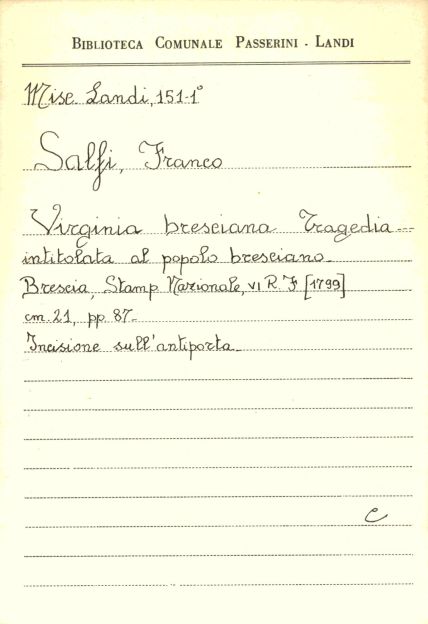 BIBLIOTECA COMUNALE PASSERINI - LANDI
Misc. Landi, 151-1°
Salfi, Franco
Virginia bresciana Tragedia
intitolata al popolo bresciano.
Brescia, Stamp. Nazionale, VI R. F. [1799]
cm. 21, pp. 87.
Incisione sull'antiporta.
C